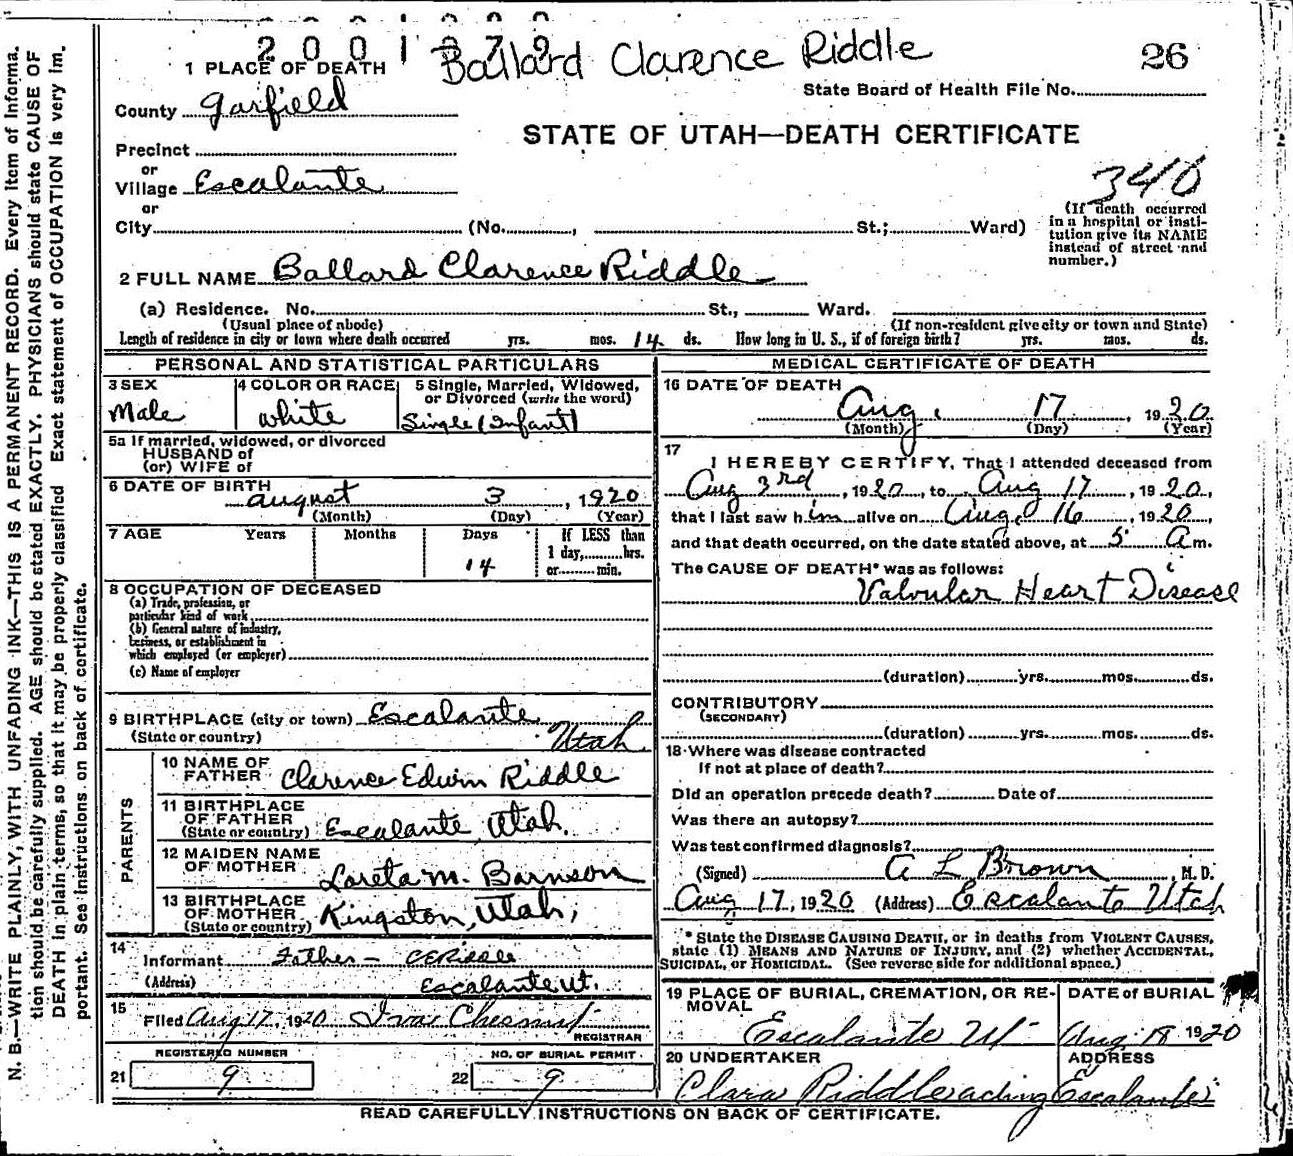 2001079 Ballard Clarence Riddle 26
1 PLACE OF DEATH
State Board of Health File No.
County Garfield
STATE OF UTAH—DEATH CERTIFICATE
Precinct
or
Village Escalante
or
City (No. , St.; Ward)
340
(If death occurred
in a hospital or insti-
tution give its NAME
instead of street and
number.)
2 FULL NAME Ballard Clarence Riddle
(a) Residence. No. St., Ward.
(Usual place of abode) (If non-resident give city or town and State)
Length of residence in city or town where death occurred yrs. mos. 14 ds. How long in U. S., if of foreign birth? yrs. mos. ds.
PERSONAL AND STATISTICAL PARTICULARS
3 SEX
Male
4 COLOR OR RACE
White
5 Single, Married, Widowed,
or Divorced (write the word)
Single (Infant)
5a If married, widowed, or divorced
HUSBAND of
(or) WIFE of
6 DATE OF BIRTH
August 3, 1920
(Month) (Day) (Year)
7 AGE Years Months Days If LESS than
1 day, hrs.
14
or min.
8 OCCUPATION OF DECEASED
(a) Trade, profession, or
particular kind of work
(b) General nature of industry,
business, or establishment in
which employed (or employer)
(c) Name of employer
9 BIRTHPLACE (city or town) Escalante
(State or country) Utah.
PARENTS
10 NAME OF
FATHER Clarence Edwin Riddle
11 BIRTHPLACE
OF FATHER
(State or country) Escalante, Utah.
12 MAIDEN NAME
OF MOTHER
Loreta M. Barnson
13 BIRTHPLACE
OF MOTHER
(State or country) Kingston, Utah,
14
Informant Father - C E Riddle
(Address) Escalante Ut.
15 Filed Aug 17, 1920
REGISTRAR
REGISTERED NUMBER
21 9
NO. OF BURIAL PERMIT.
22 9
MEDICAL CERTIFICATE OF DEATH
16 DATE OF DEATH
Aug. 17, 1920
(Month) (Day) (Year)
17
I HEREBY CERTIFY, That I attended deceased from
Aug 3rd, 1920, to Aug 17, 1920,
that I last saw him alive on Aug. 16, 1920,
and that death occurred, on the date stated above, at 5 A m.
The CAUSE OF DEATH* was as follows:
Valvular Heart Disease
(duration) yrs. mos. ds.
CONTRIBUTORY
(SECONDARY)
(duration) yrs. mos. ds.
18 Where was disease contracted
If not at place of death?
Did an operation precede death? Date of
Was there an autopsy?
Was test confirmed diagnosis?
(Signed) A L Brown, M. D.
Aug 17, 1920 (Address) Escalante Utah
* State the DISEASE CAUSING DEATH, or in deaths from VIOLENT CAUSES,
state (1) MEANS AND NATURE OF INJURY, and (2) whether ACCIDENTAL,
SUICIDAL, or HOMICIDAL. (See reverse side for additional space.)
19 PLACE OF BURIAL, CREMATION, OR RE-
MOVAL
Escalante Ut
DATE of BURIAL
Aug. 18 1920
20 UNDERTAKER
Clara Riddle acting
ADDRESS
Escalante
READ CAREFULLY INSTRUCTIONS ON BACK OF CERTIFICATE.
N. B.—WRITE PLAINLY, WITH UNFADING INK—THIS IS A PERMANENT RECORD. Every item of informa-
tion should be carefully supplied. AGE should be stated EXACTLY. PHYSICIANS should state CAUSE OF
DEATH in plain terms, so that it may be properly classified. Exact statement of OCCUPATION is very im-
portant. See instructions on back of certificate.